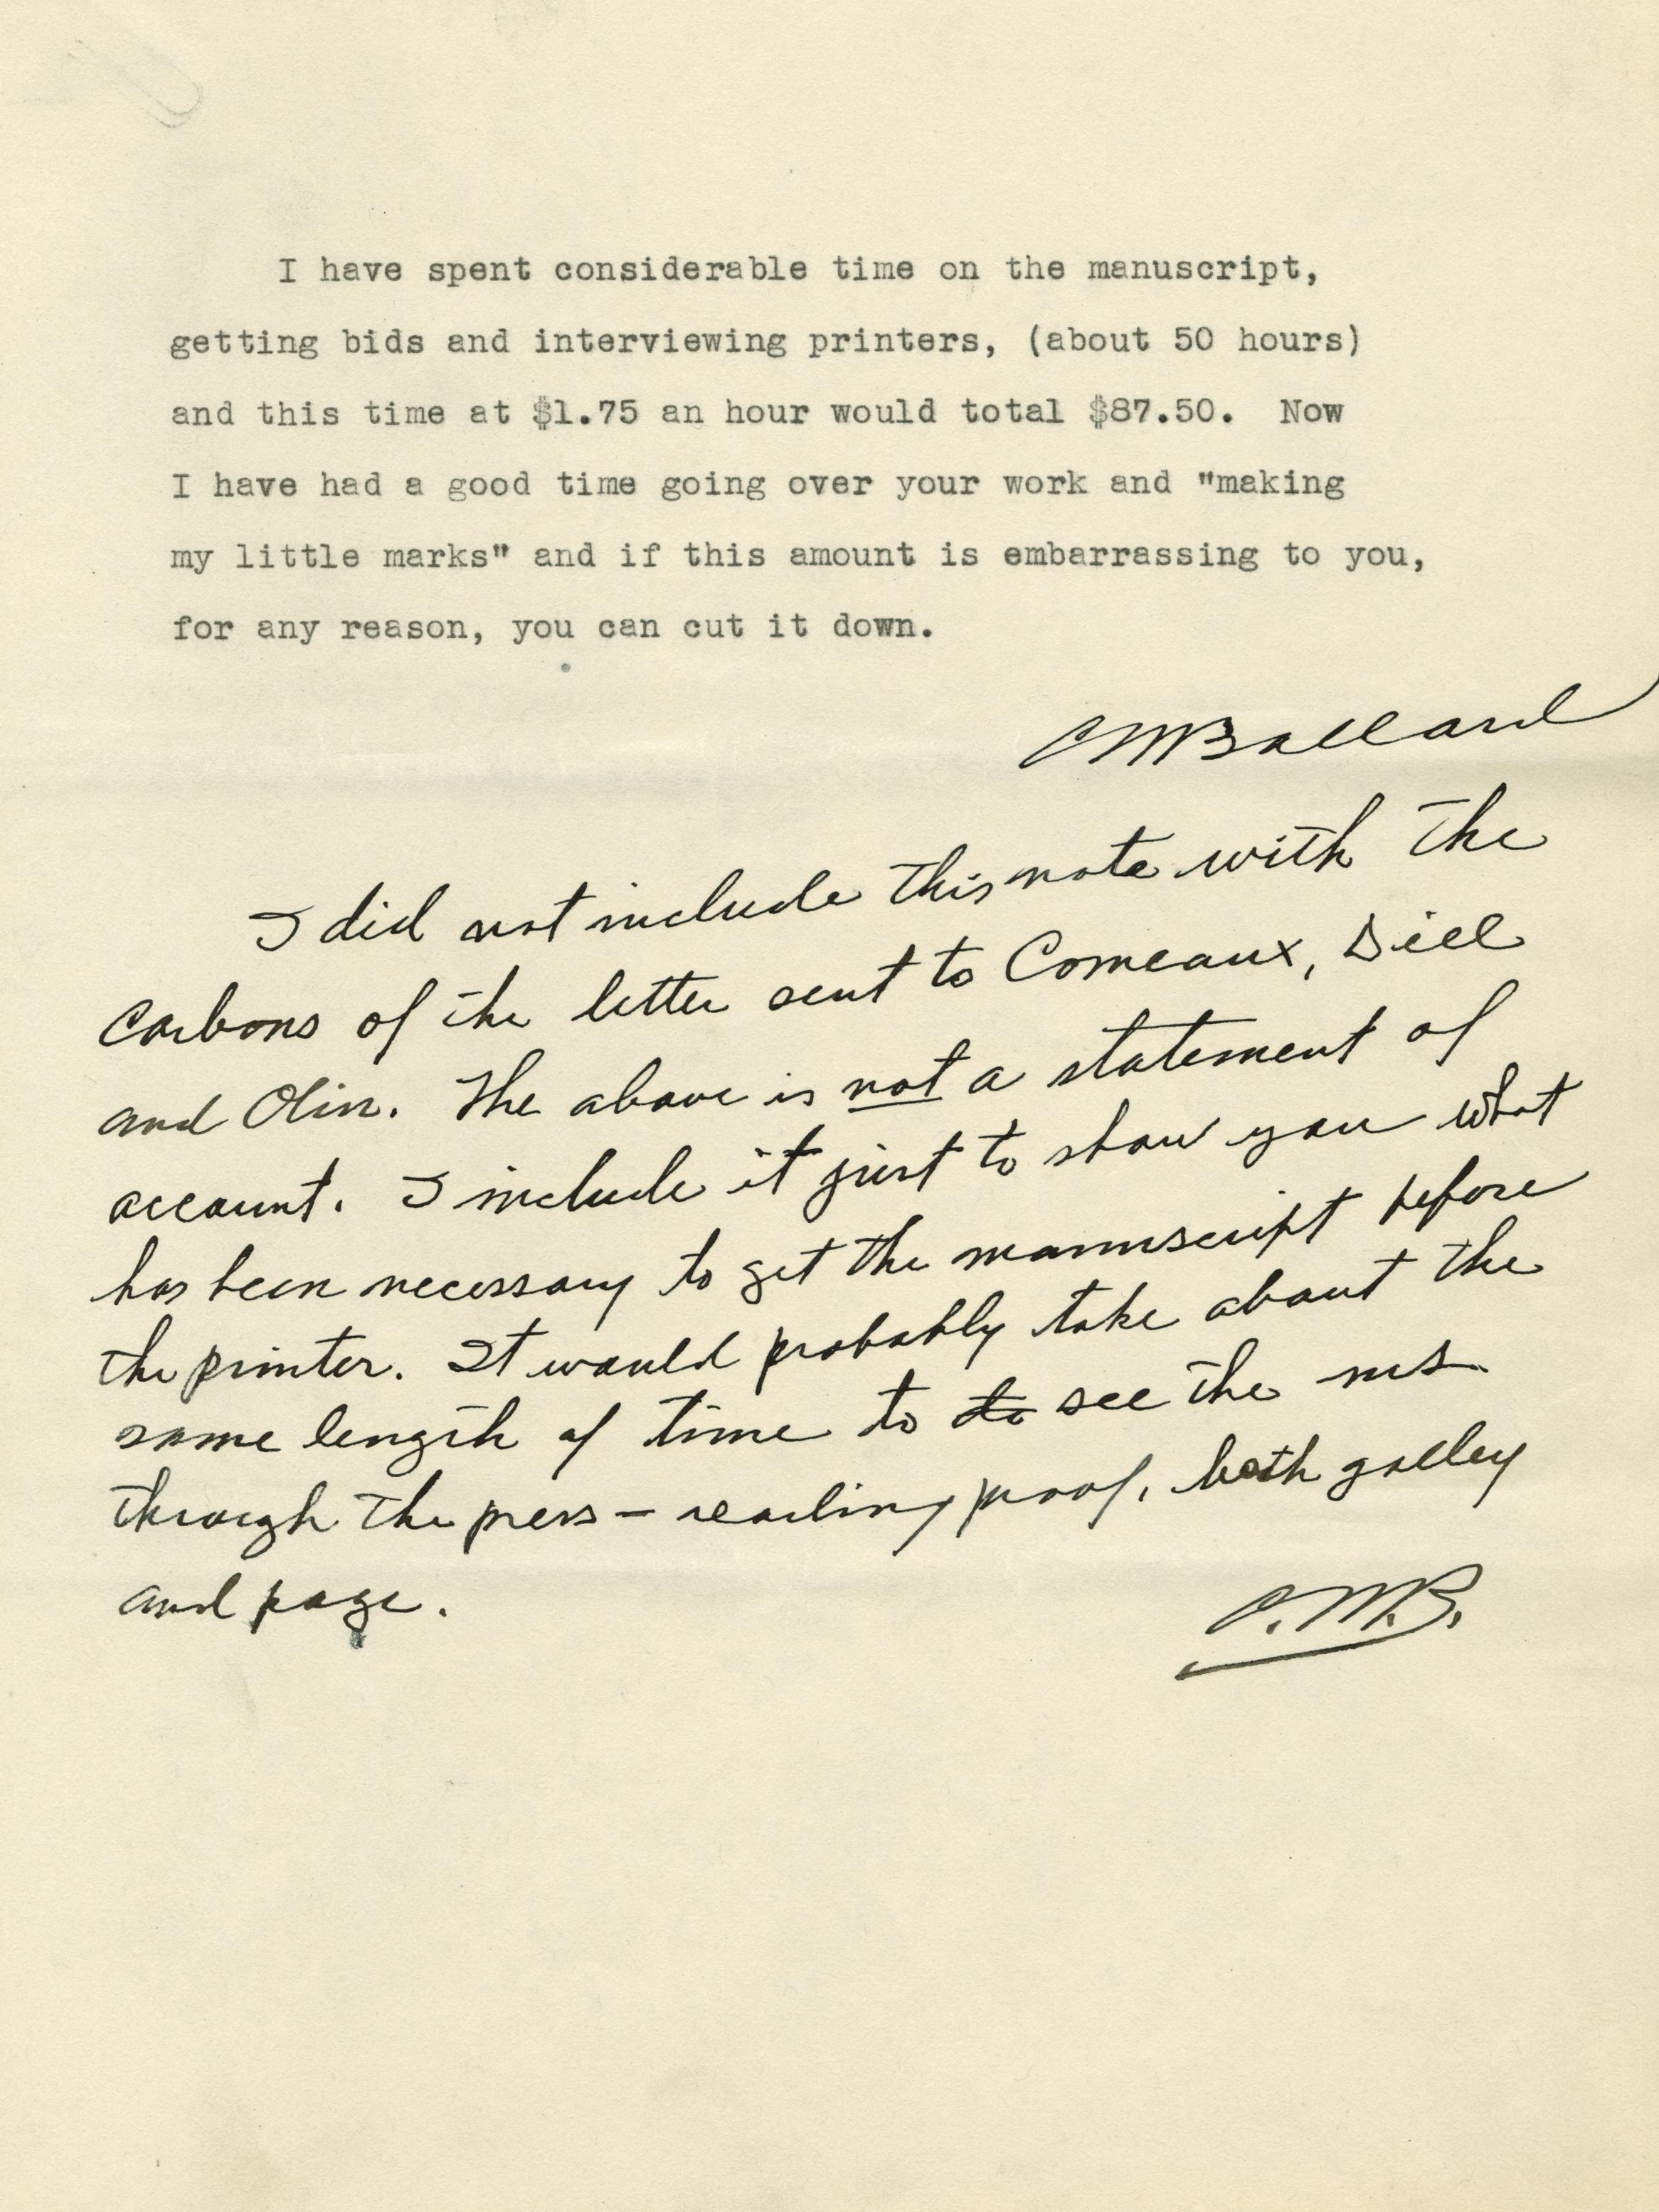 I have spent considerable time on the manuscript,
getting bids and interviewing printers, (about 50 hours)
and this time at $1.75 an hour would total $87.50.  Now
I have had a good time going over your work and "making
my little marks" and if this amount is embarrassing to you,
for any reason, you can cut it down.
CMBallard
I did not include this note with the
carbons of the letter sent to Comeaux, Dill
and Olin. The above is not a statement of
account. I include it just to show you what
has been necessary to get the manuscript before
the printer. It would probably take about the
same length of time to to see the ms
through the press – reading proof, both galley
and page.
C.M.B.